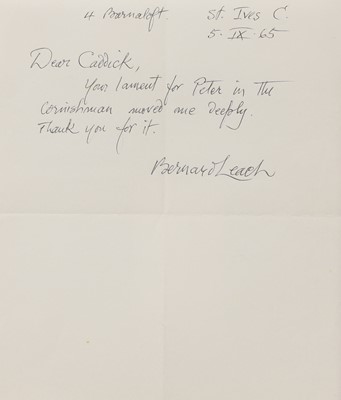 4 Barnaloft. St. Ives C.
5. IX. 65
Dear Caddick,
Your lament for Peter in the
Cornishman moved me deeply.
Thank you for it.
Bernard Leach